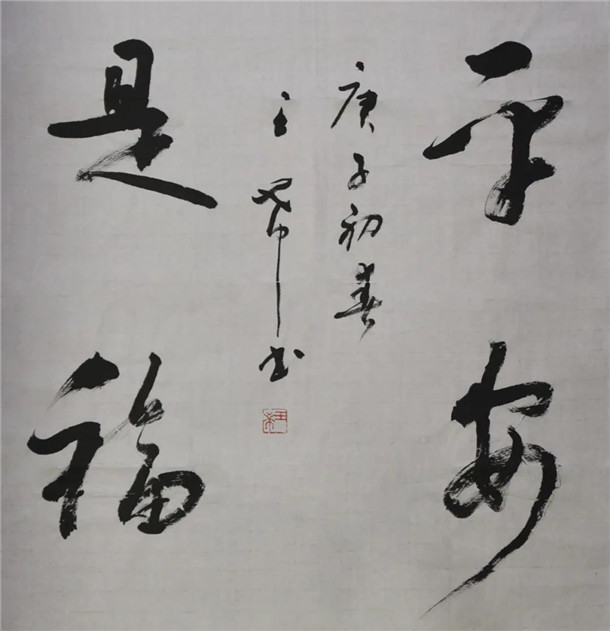 平安
是福
庚子初春
王希书